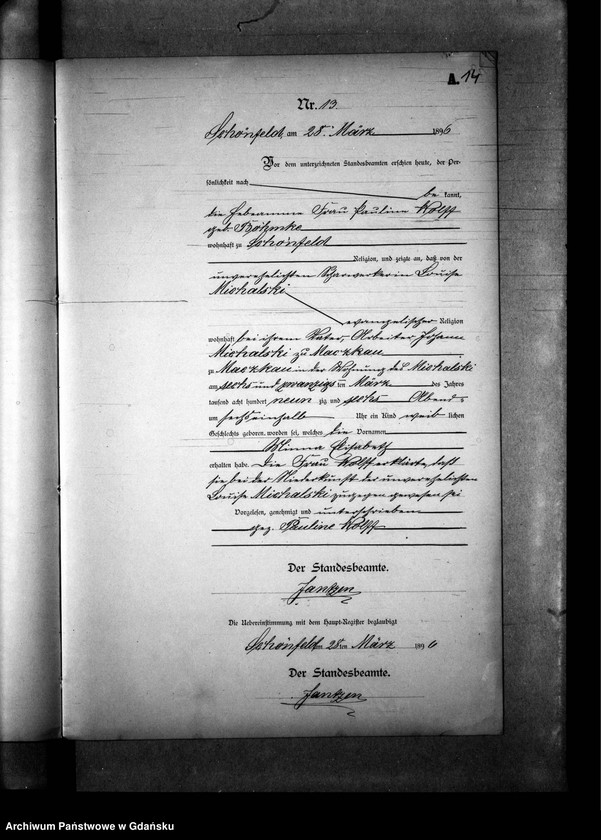 A. 14
Nr. 13.
Schönfeld, am 28. März 1896
Vor dem unterzeichneten Standesbeamten erschien heute, der Per-
sönlichkeit nach
be kannt,
die Hebeamme Frau Pauline Kolff
geb.
wohnhaft zu Schönfeld
Religion, und zeigte an, daß von der
unverehelichten Scharwerkerin Louise
Michalski
evangelischer Religion
wohnhaft bei ihrem Vater, Arbeiter Johann
Michalski zu Maczkau
zu Maczkau in der Wohnung des Michalski
am sechs und zwanzigsten März des Jahres
tausend acht hundert neun zig und sechs Abends
um sechseinhalb Uhr ein Kind weib lichen
Geschlechts geboren worden sei, welches die Vornamen
Minna Elisabeth
erhalten habe. Die Frau Kolff erklärte, daß
sie bei der Niederkunft der unverehelichten
Louise Michalski zugegen gewesen sei
Vorgelesen, genehmigt und unterschrieben
gez. Pauline Kolff
Der Standesbeamte.
Jantzen
Die Uebereinstimmung mit dem Haupt-Register beglaubigt
Schönfeld am 28ten März 1896
Der Standesbeamte.
Jantzen
Archiwum Państwowe w Gdańsku